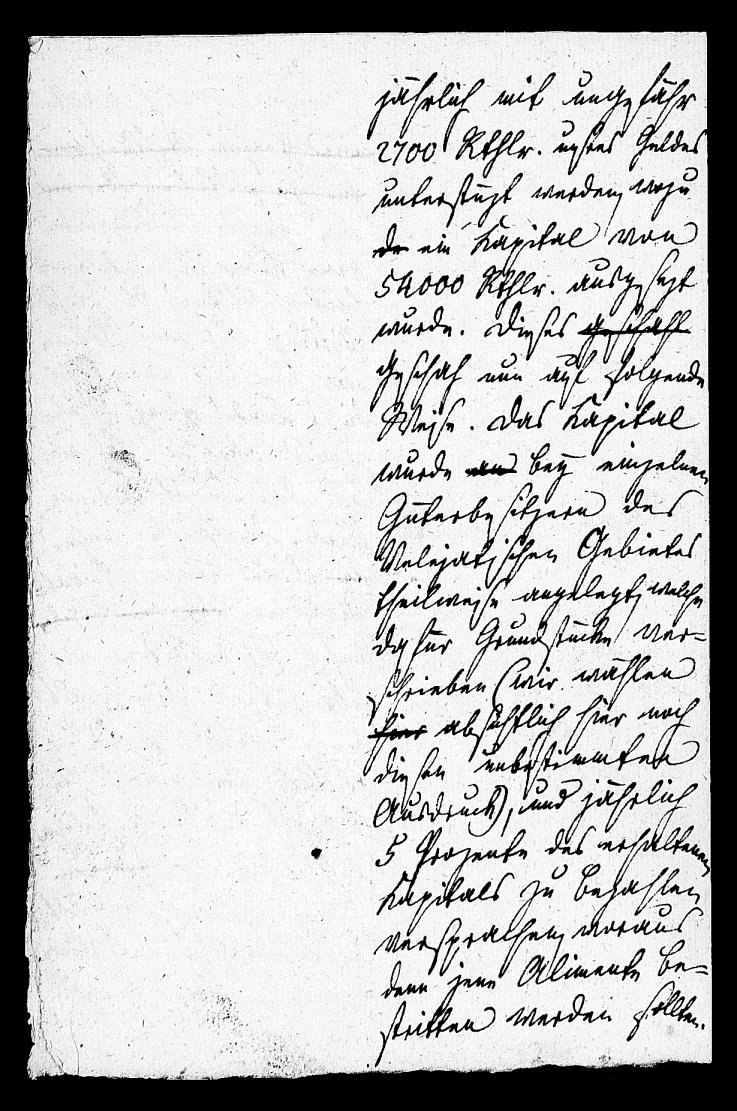 jährlich mit ungefähr
2700 Rthlr. unsres Geldes
unterstüzt werden, wozu
de ein Kapital von
54000 Rthlr. ausgesezt
wurde. Dieses geschah
geschah nun auf folgende
Weise. Das Kapital
wurde an bey einzelnen
Güterbesitzern des
Velejatischen Gebietes
theilweise angelegt, welche
dafür Grundstücke ver-
schrieben (wir wählen
hier absichtlich hier noch
diesen unbestimmten
Ausdruck), und jährlich
5 Prozente des erhaltenen
Kapitals zu bezahlen
versprachen, woraus
denn jene Alimente be-
stritten werden sollten.